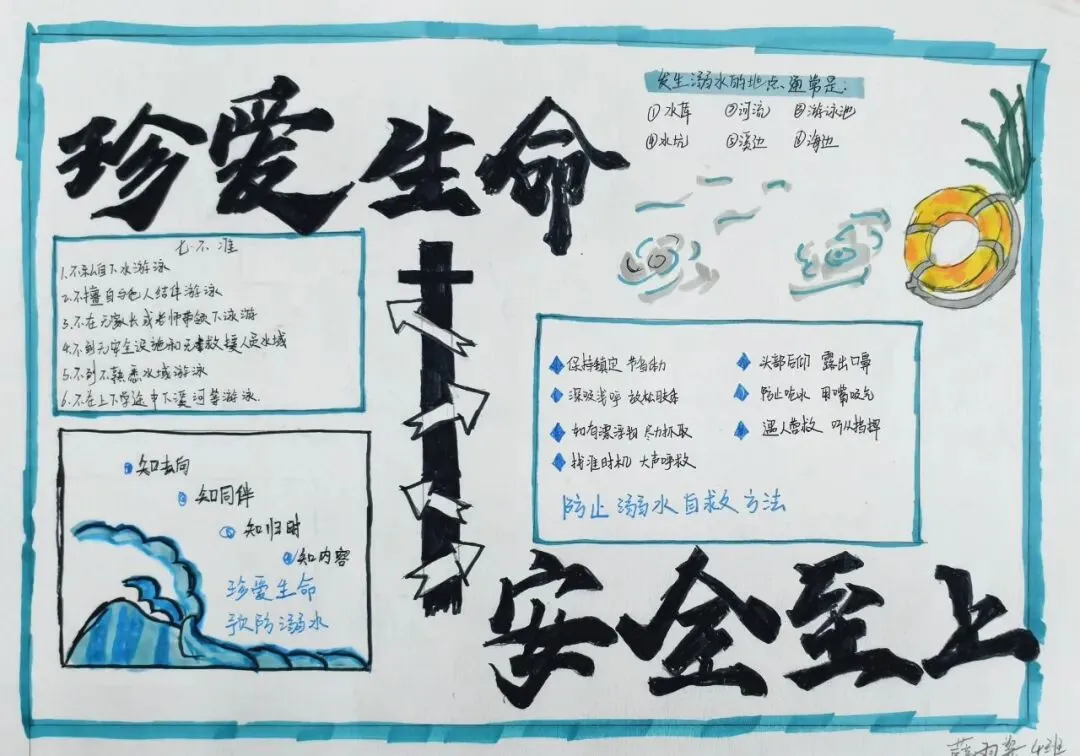 珍爱生命
发生溺水的地点通常是:
①水库 ②河流 ③游泳池
④水坑 ⑤溪边 ⑥海边
七不准
1.不私自下水游泳
2.不擅自与他人结伴游泳
3.不在无家长或老师带领下泳游
4.不到无安全设施和无救援人员水域
5.不到不熟悉水域游泳
6.不在上下学途中下溪河等游泳.
保持镇定 节省体力
深吸浅呼 放松肢体
如有漂浮物 尽力抓取
找准时机 大声呼救
头部后仰 露出口鼻
防止呛水 用嘴吸气
遇人营救 听从指挥
防止溺水自救方法
知去向
知同伴
知归时
知内容
珍爱生命
预防溺水
安全至上
4班